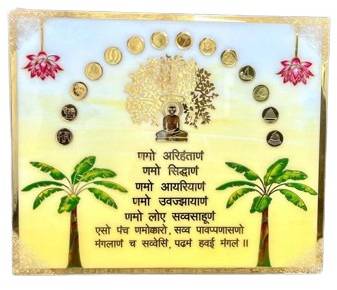 णमो अरिहंताणं
णमो सिद्धाणं
णमो आयरियाणं
णमो उवज्झायाणं
णमो लोए सव्वसाहूणं
एसो पंच णमोकारो, सव्व पावप्पणासणो
मंगलाणं च सव्वेसिं, पढमं हवई मंगलं ॥